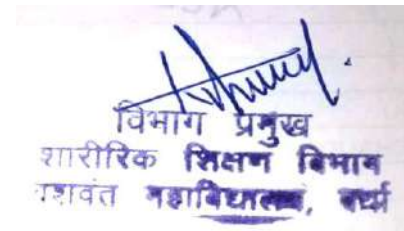 विभाग प्रमुख
शारीरिक शिक्षण विभाग
यशवंत महाविद्यालय, वर्धा